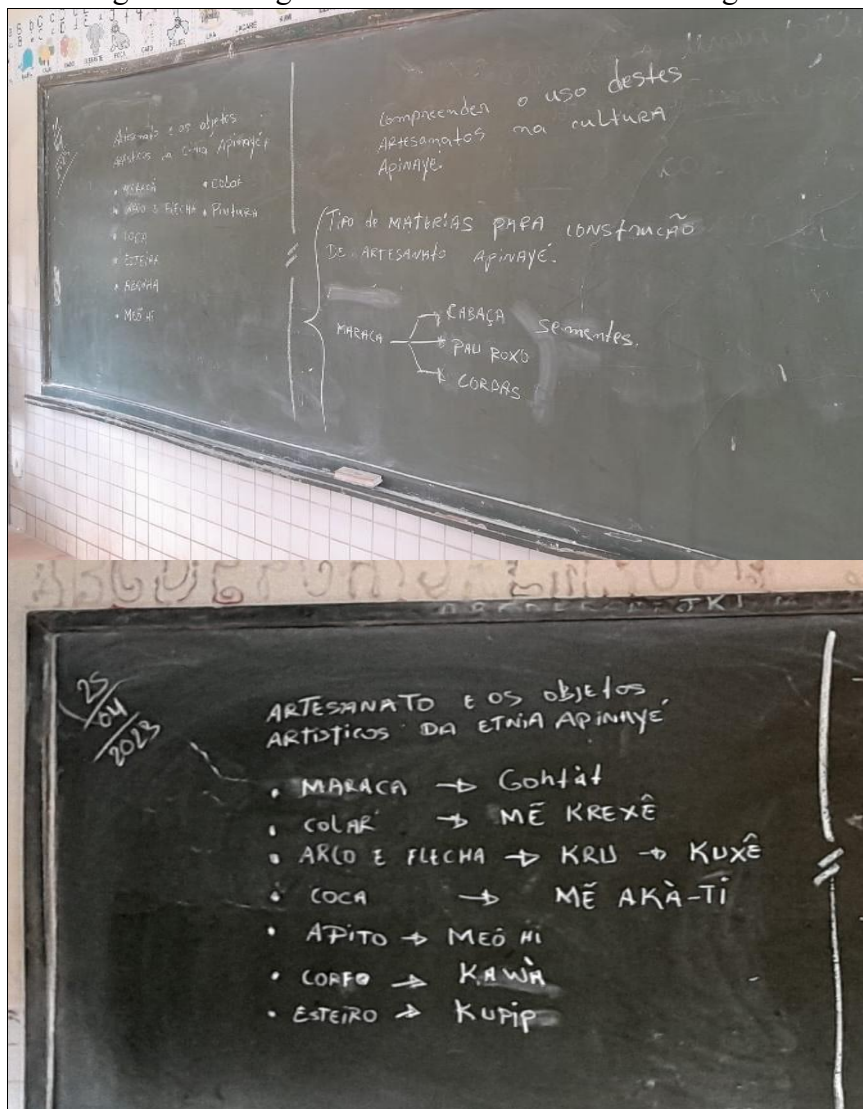 Artesanato e os objetos
Artísticos na Etnia Apinayé
• MARACÁ • COLAR
• ARCO E FLECHA • Pintura
• COCA
• ESTEIRA
• MEÕ HI
Compreender o uso destes
ARTESANATOS na cultura
APINAYÉ.
Tipo de MATERIAS PARA CONSTRUÇÃO
DE ARTESANATO APINAYÉ.
MARACA
CABAÇA
PAU ROXO
CORDAS
Sementes.
25/04/2023
ARTESANATO E OS OBJETOS
ARTISTICOS DA ETNIA APINAYÉ
• MARACA → Gohtàt
• COLAR → MẼ KREXÊ
• ARCO E FLECHA → KRU → KUXÊ
• COCA → MẼ AKÀ-TI
• APITO → MEÕ HI
• COFFO → KAWÀ
• ESTEIRO → KUPIP